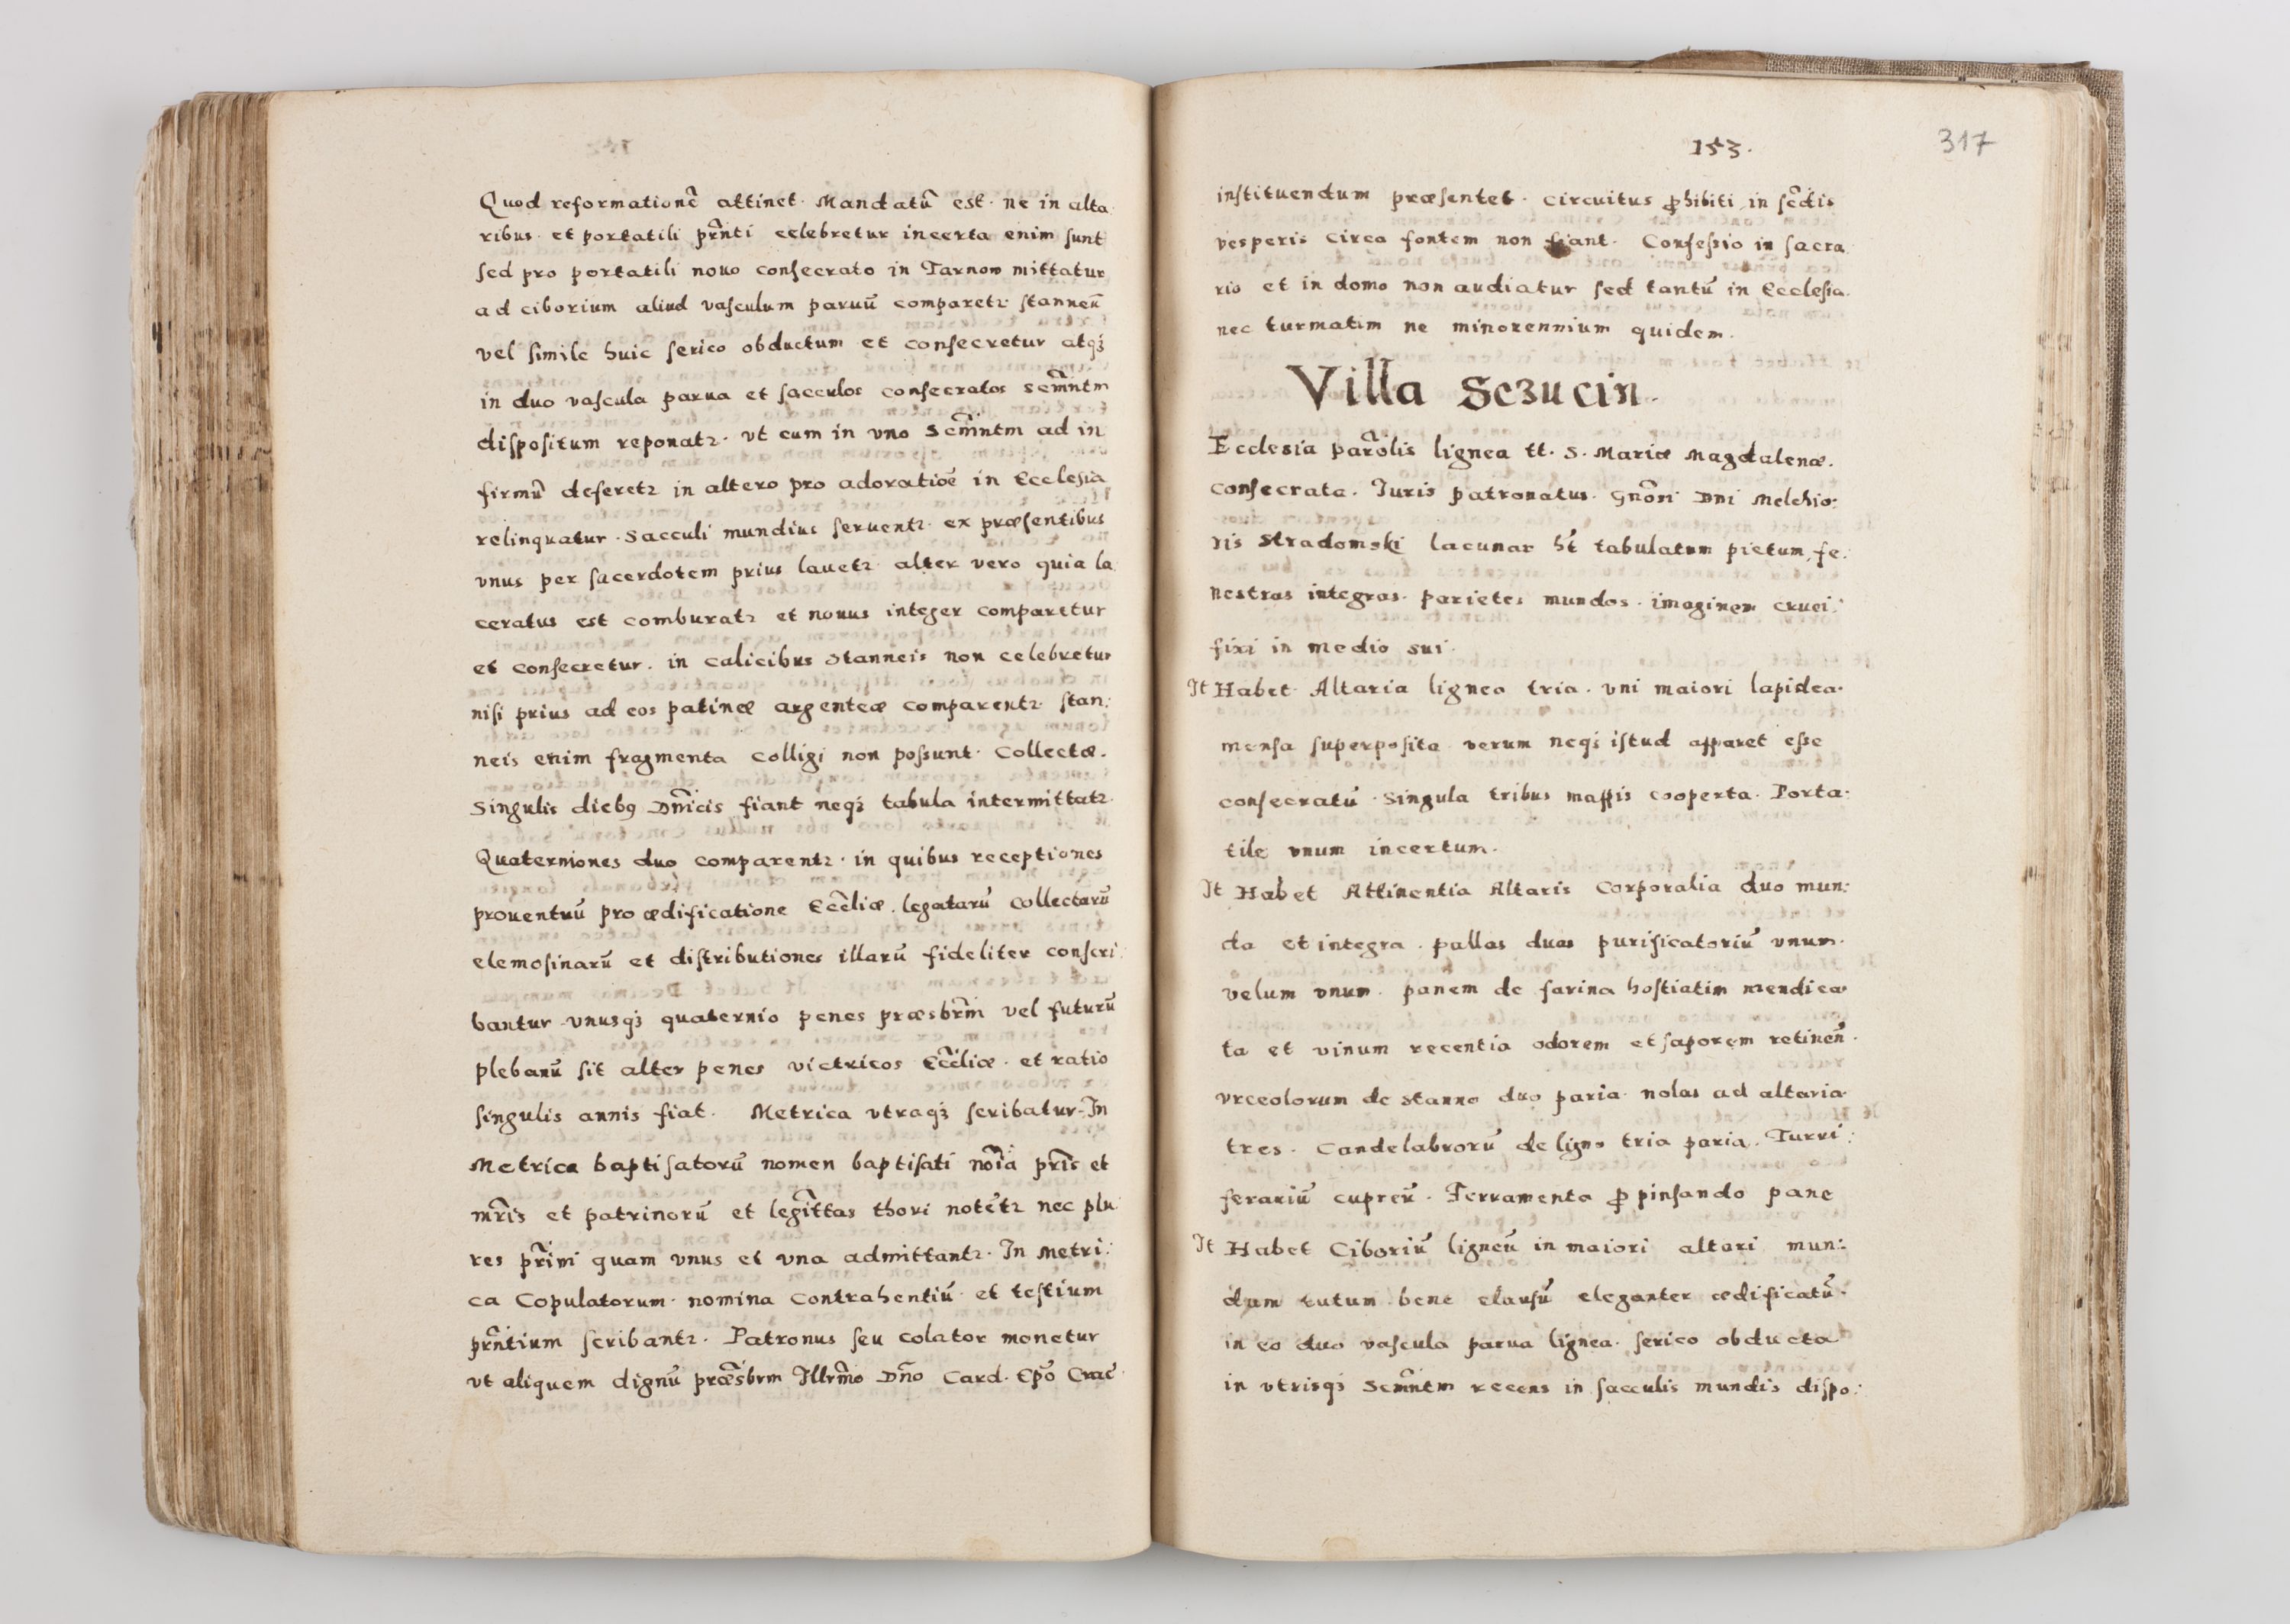 Quod reformationē attinet. Mandatū est. ne in alta
ribus et portatili pr̄nti celebretur incerta enim sunt
sed pro portatili nouo consecrato in Tarnow mittatur
ad ciborium aliud vasculum paruū comparetr stanneū
vel simile huic serico obductum et consecretur atq3
in duo vascula parua et sacculos consecratos scm̄ntm
dispositum reponatr. vt cum in vno Scm̄ntm ad in
firmū deferetr in altero pro adoratiōe in Ecclesia
relinquatur. Sacculi mundius seruentr ex præsentibus
vnus per sacerdotem prius lauetr alter vero quia la
ceratus est comburatr et nouus integer comparetur
et consecretur. in calicibus stanneis non celebretur
nisi prius ad eos patinæ argenteæ comparentr. stan:
neis enim fragmenta colligi non possunt. Collectæ.
Singulis dieb9 Dn̄icis fiant neq3 tabula intermittatr.
Quaterniones duo comparentr. in quibus receptiones
prouentuū pro ædificatione Eccl̄iæ. legatarū collectarū
elemosinarū et distributiones illarū fideliter conscri:
bantur. vnusq3 quaternio penes præsbr̄m vel futurū
plebanū sit alter penes victricos Eccl̄iæ. et ratio
singulis annis fiat. Metrica vtraq3 scribatur. In
Metrica baptisatorū nomen baptisati nōia pr̄is et
mr̄is et patrinorū et legitt̄as thori notētr nec plu:
res pr̄ini quam vnus et vna admittantr. In Metri:
ca Copulatorum. nomina Contrahentiū et testium
pr̄ntium scribantr. Patronus seu colator monetur
vt aliquem dignū præsbr̄m Illr̄mo Dn̄o Card. Ep̄o Crac̄
153.
317
instituendum præsentet. circuitus ꝓhibiti in secd̄is
vesperis circa fontem non fiant. Confessio in sacra
rio et in domo non audiatur sed tantū in Ecclesia.
nec turmatim ne minorennium quidem.
Villa Sczucin.
Ecclesia parōlis lignea tt. S. Mariæ Magdalenæ.
consecrata. Iuris patronatus. Gnōsi Dni Melchio:
ris Stradomski lacunar ht̄ tabulatum pictum, fe:
nestras integras. parietes mundos. imaginem cruci:
fixi in medio sui.
It Habet Altaria lignea tria. vni maiori lapidea
mensa superposita verum neq3 istud apparet esse
consecratū. Singula tribus mappis cooperta. Porta:
tile vnum incertum.
It Habet Attinentia Altaris Corporalia duo mun:
da et integra. pallas duas purificatoriū vnum.
velum vnum. panem de farina hostiatim mendica
ta et vinum recentia odorem et saporem retineñ.
vrceolorum de stanno duo paria. nolas ad altaria
tres. Candelabrorū de ligno tria paria. Turri:
ferariū cupreū. Ferramenta ꝓ pinsando pane
It Habet Ciboriū ligneū in maiori altari mun:
dum tutum bene clausū eleganter ædificatū.
in eo duo vascula parua lignea. serico obducta
in vtrisq3 Scm̄ntm recens in sacculis mundis dispo: